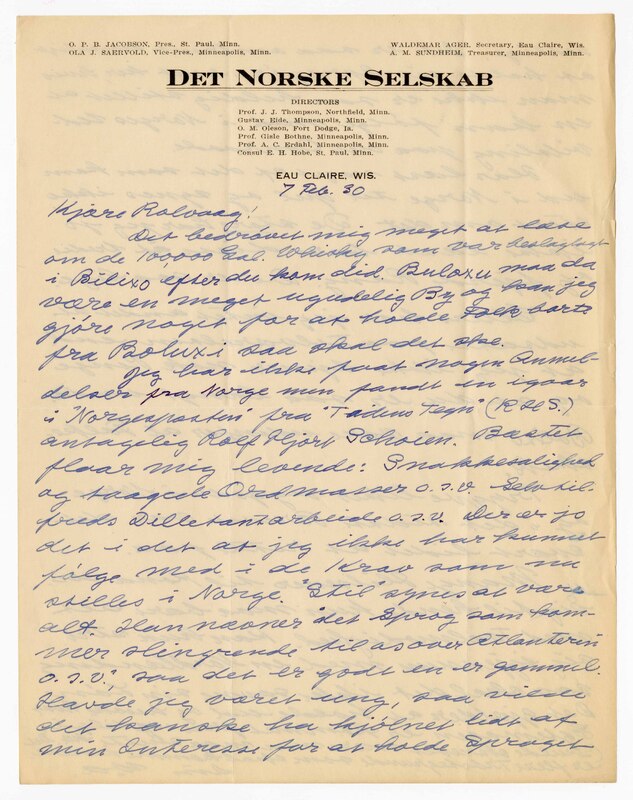 O. P. B. JACOBSON, Pres., St. Paul, Minn.
OLA J. SAERVOLD, Vice-Pres., Minneapolis, Minn.
WALDEMAR AGER, Secretary, Eau Claire, Wis.
A. M. SUNDHEIM, Treasurer, Minneapolis, Minn.
DET NORSKE SELSKAB
DIRECTORS
Prof. J. J. Thompson, Northfield, Minn.
Gustav Eide, Minneapolis, Minn.
O. M. Oleson, Fort Dodge, Ia.
Prof. Gisle Bothne, Minneapolis, Minn.
Prof. A. C. Erdahl, Minneapolis, Minn.
Consul E. H. Hobe, St. Paul, Minn.
EAU CLAIRE, WIS.
7 Feb. 30
Kjære Rolvaag!
Det bedrøvet mig meget at læse
om de 10000 Gal. Whisky som var beslaglagt
i Bilixo efter du kom did. Buloxu maa da
være en meget ugudelig By og kan jeg
gjøre noget for at holde Folk borte
fra Boluxi saa skal det ske.
Jeg har ikke faat nogen Anmel-
delser fra Norge men fandt en igaar
i "Norgesposten" fra "Tidens Tegn" (R.H.S.)
antagelig Rolf Hjort Schøien. Bæstet
flaar mig levende: Snakkesalighed
og taagede Ordmasser o.s.v. Selvtil-
freds Dilletantarbeide o.s.v. Der er jo
det i det at jeg ikke har kunnet
følge med i de Krav som nu
stilles i Norge. "Stil" synes at være
alt. Han nævner "det Sprog som kom-
mer slingrende til os over Atlanteren
o.s.v.", saa det er godt en er gammel.
Havde jeg været ung, saa vilde
det kanske ha kjølnet lidt af
min Interesse for at holde Sproget